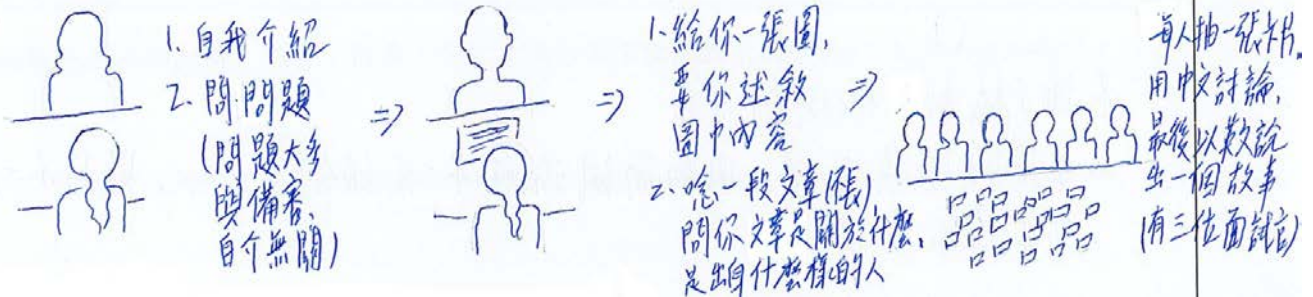 1. 自我介紹
2. 問問題
(問題大多
與備審、
自介無關)
1. 給你一張圖,
要你述敘
圖中內容
2. 唸一段文章(張),
問你文章是關於什麼、
是出自什麼樣的人
每人抽一張卡片。
用中文討論,
最後以歎說
出一個故事
(有三位面試官)